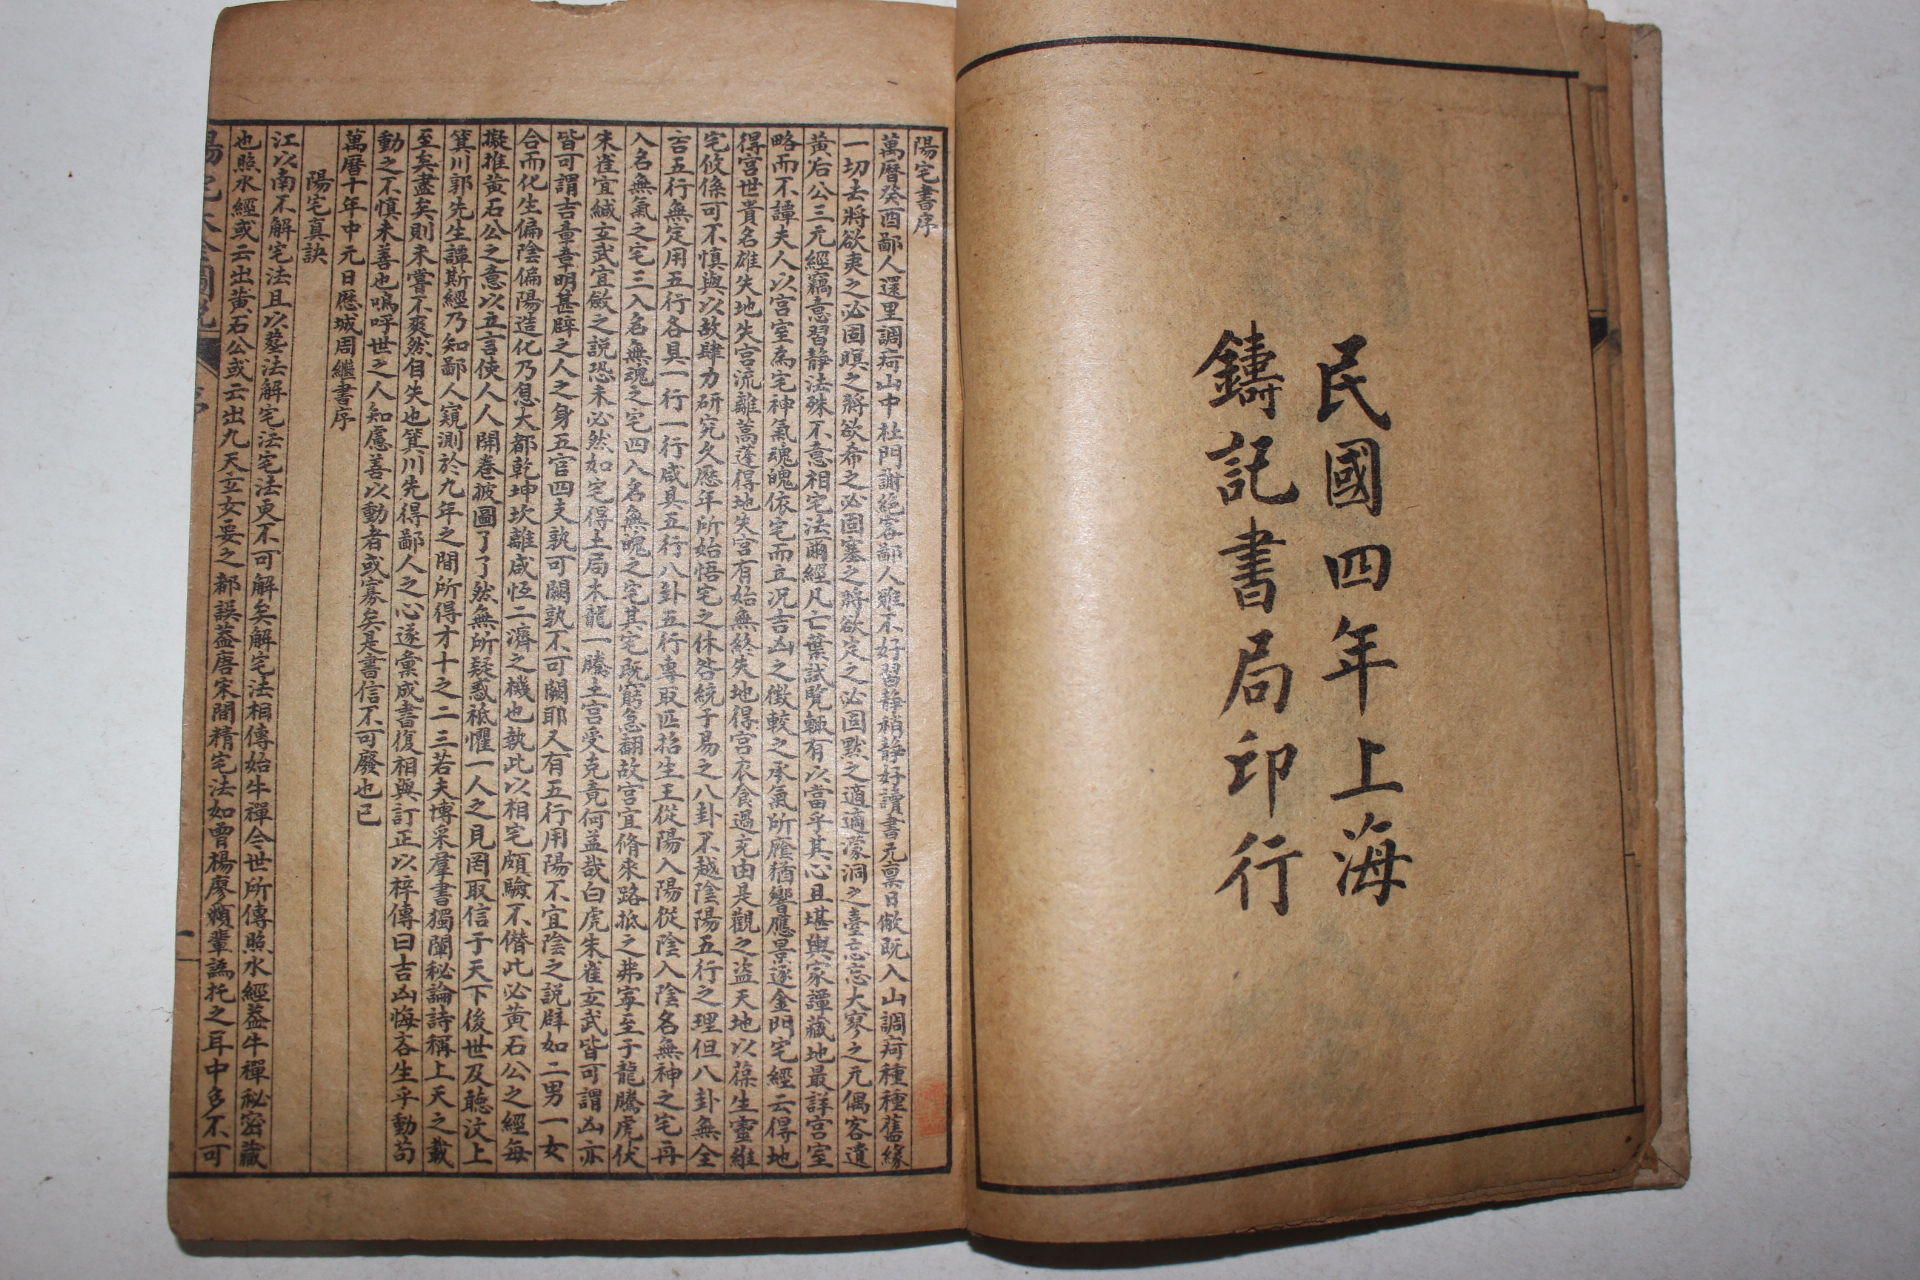 民國四年上海
鑄記書局印行
陽宅書序
萬曆癸酉鄙人還里調疴山中杜門謝絕客鄙人雖不好習靜稍靜好讀書元稟日儆既入山調疴種種舊緣
一切去將欲夷之必固瞑之將欲希之必固塞之將欲定之必固默之適適濛洞之臺忘忘大寥之元偶客遺
黃石公三元經竊意習靜法殊不意相宅法爾經凡亡葉試覽輒有以當乎其心且堪輿家譚藏地最詳宮室
略而不譚夫人以宮室為宅神氣魂魄依宅而立况吉凶之徵較之承氣所應猶響應景逐金門宅經云得地
得宮世貴名雄失地失宮流離蒿蓬得地失宮有始無終失地得宮衣食過充由是觀之盜天地以葆生靈維
宅攸係可不慎與以故肆力研究久歷年所始悟宅之休咎統于易之八卦不越陰陽五行之理但八卦無全
吉五行無定用五行各具一行一行咸具五行八卦五行專取匹招生王從陽入陽從陰入陰名無神之宅再
入名無氣之宅三入名無魂之宅四入名無魄之宅其宅既窮急翻故宮宜脩來路抵之弗寧至于龍騰虎伏
朱雀宜緘玄武宜斂之說恐未必然如宅得土局木龍一騰土宮受克竟何益哉白虎朱雀玄武皆可謂凶亦
皆可謂吉章章明甚辟之人之身五官四支孰可闕孰不可闕耶又有五行用陽不宜陰之說辟如二男一女
合而化生偏陰偏陽造化乃息大都乾坤坎離咸恆二濟之機也執此以相宅頗驗不僭此必黃石公之經每
擬推黃石公之意以立言使人人開卷披圖了了然無所疑惑祇懼一人之見罔取信于天下後世及聽汶上
箕川郭先生譚斯經乃知鄙人窺測於九年之間所得才十之二三若夫博采羣書獨闡秘論詩稱上天之載
至矣盡矣則未嘗不爽然自失也箕川先得鄙人之心遂彙成書復相與訂正以梓傳曰吉凶悔吝生乎動苟
動之不慎未善也嗚呼世之人知慮善以動者或寡矣是書信不可廢也已
萬曆十年中元日歷城周繼書序
陽宅真訣
江以南不解宅法且以葬法解宅法宅法更不可解矣解宅法相傳始牛禪今世所傳照水經葢牛禪秘密藏
也照水經或云出黃石公或云出九天玄女要之都誤葢唐宋間精宅法如曾楊廖賴輩譌托之耳中多不可